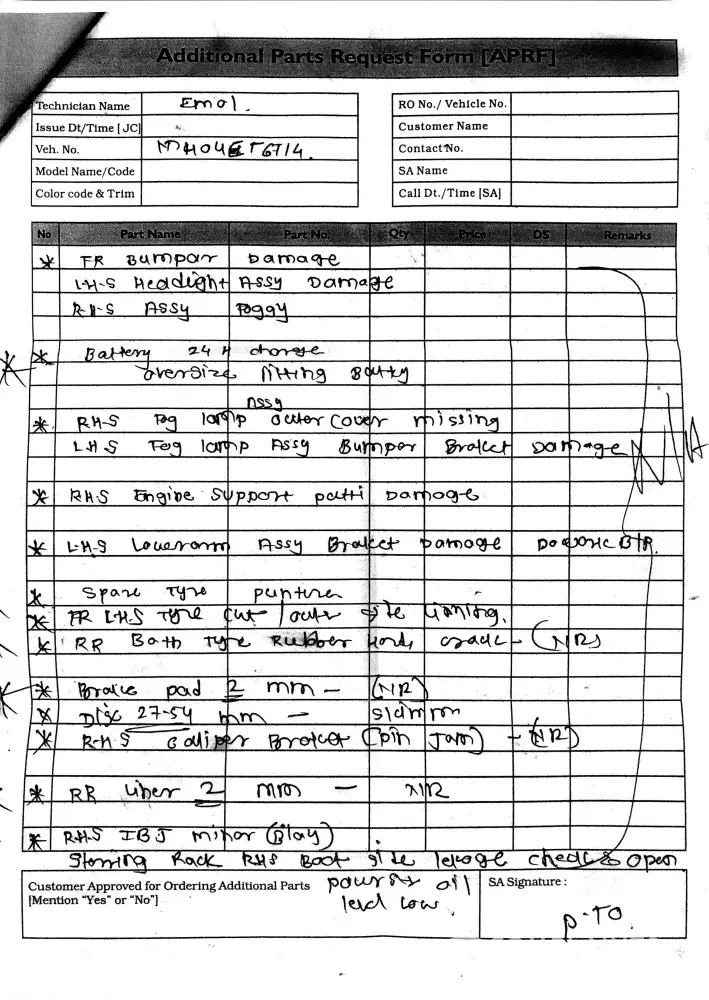 Additional Parts Request Form [APRF]
Technician Name Emol. RO No./ Vehicle No.
Issue Dt/Time [ JC] Customer Name
Veh. No. MH04ET6714. Contact No.
Model Name/Code SA Name
Color code & Trim Call Dt./Time [SA]
No Part Name Part No. Qty Price DS Remarks
* FR Bumpar Damage
L-H-S Headlight Assy Damage
R-H-S Assy Foggy
* Battery 24 H charge
oversize fitting Battry
Assy
* RH-S Fog lamp outer Cover missing
L H S Fog lamp Assy Bumper Braket Damage
N/A
* RHS Engine Support patti Damage
* L-H-S Lowerarm Assy Braket Damage
* Spare Tyre punture
* FR LHS Tyre Cut / outer site
* RR Both Tyre Rubber Hard, crack - (NR)
* Brake pad 2 mm - (NR)
* Disc 27-54 mm -
* R-H-S Caliper Braket (pin Jam) - (NR)
* RR Liner 2 mm - NR
* RHS IBJ minor (play)
Sterring Rack RHS Boot site lekage check & open
Customer Approved for Ordering Additional Parts SA Signature :
[Mention "Yes" or "No"]
power oil
level low.
P-TO.